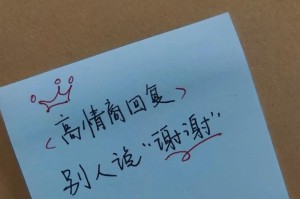 <高情商回复>
别人说“谢谢”